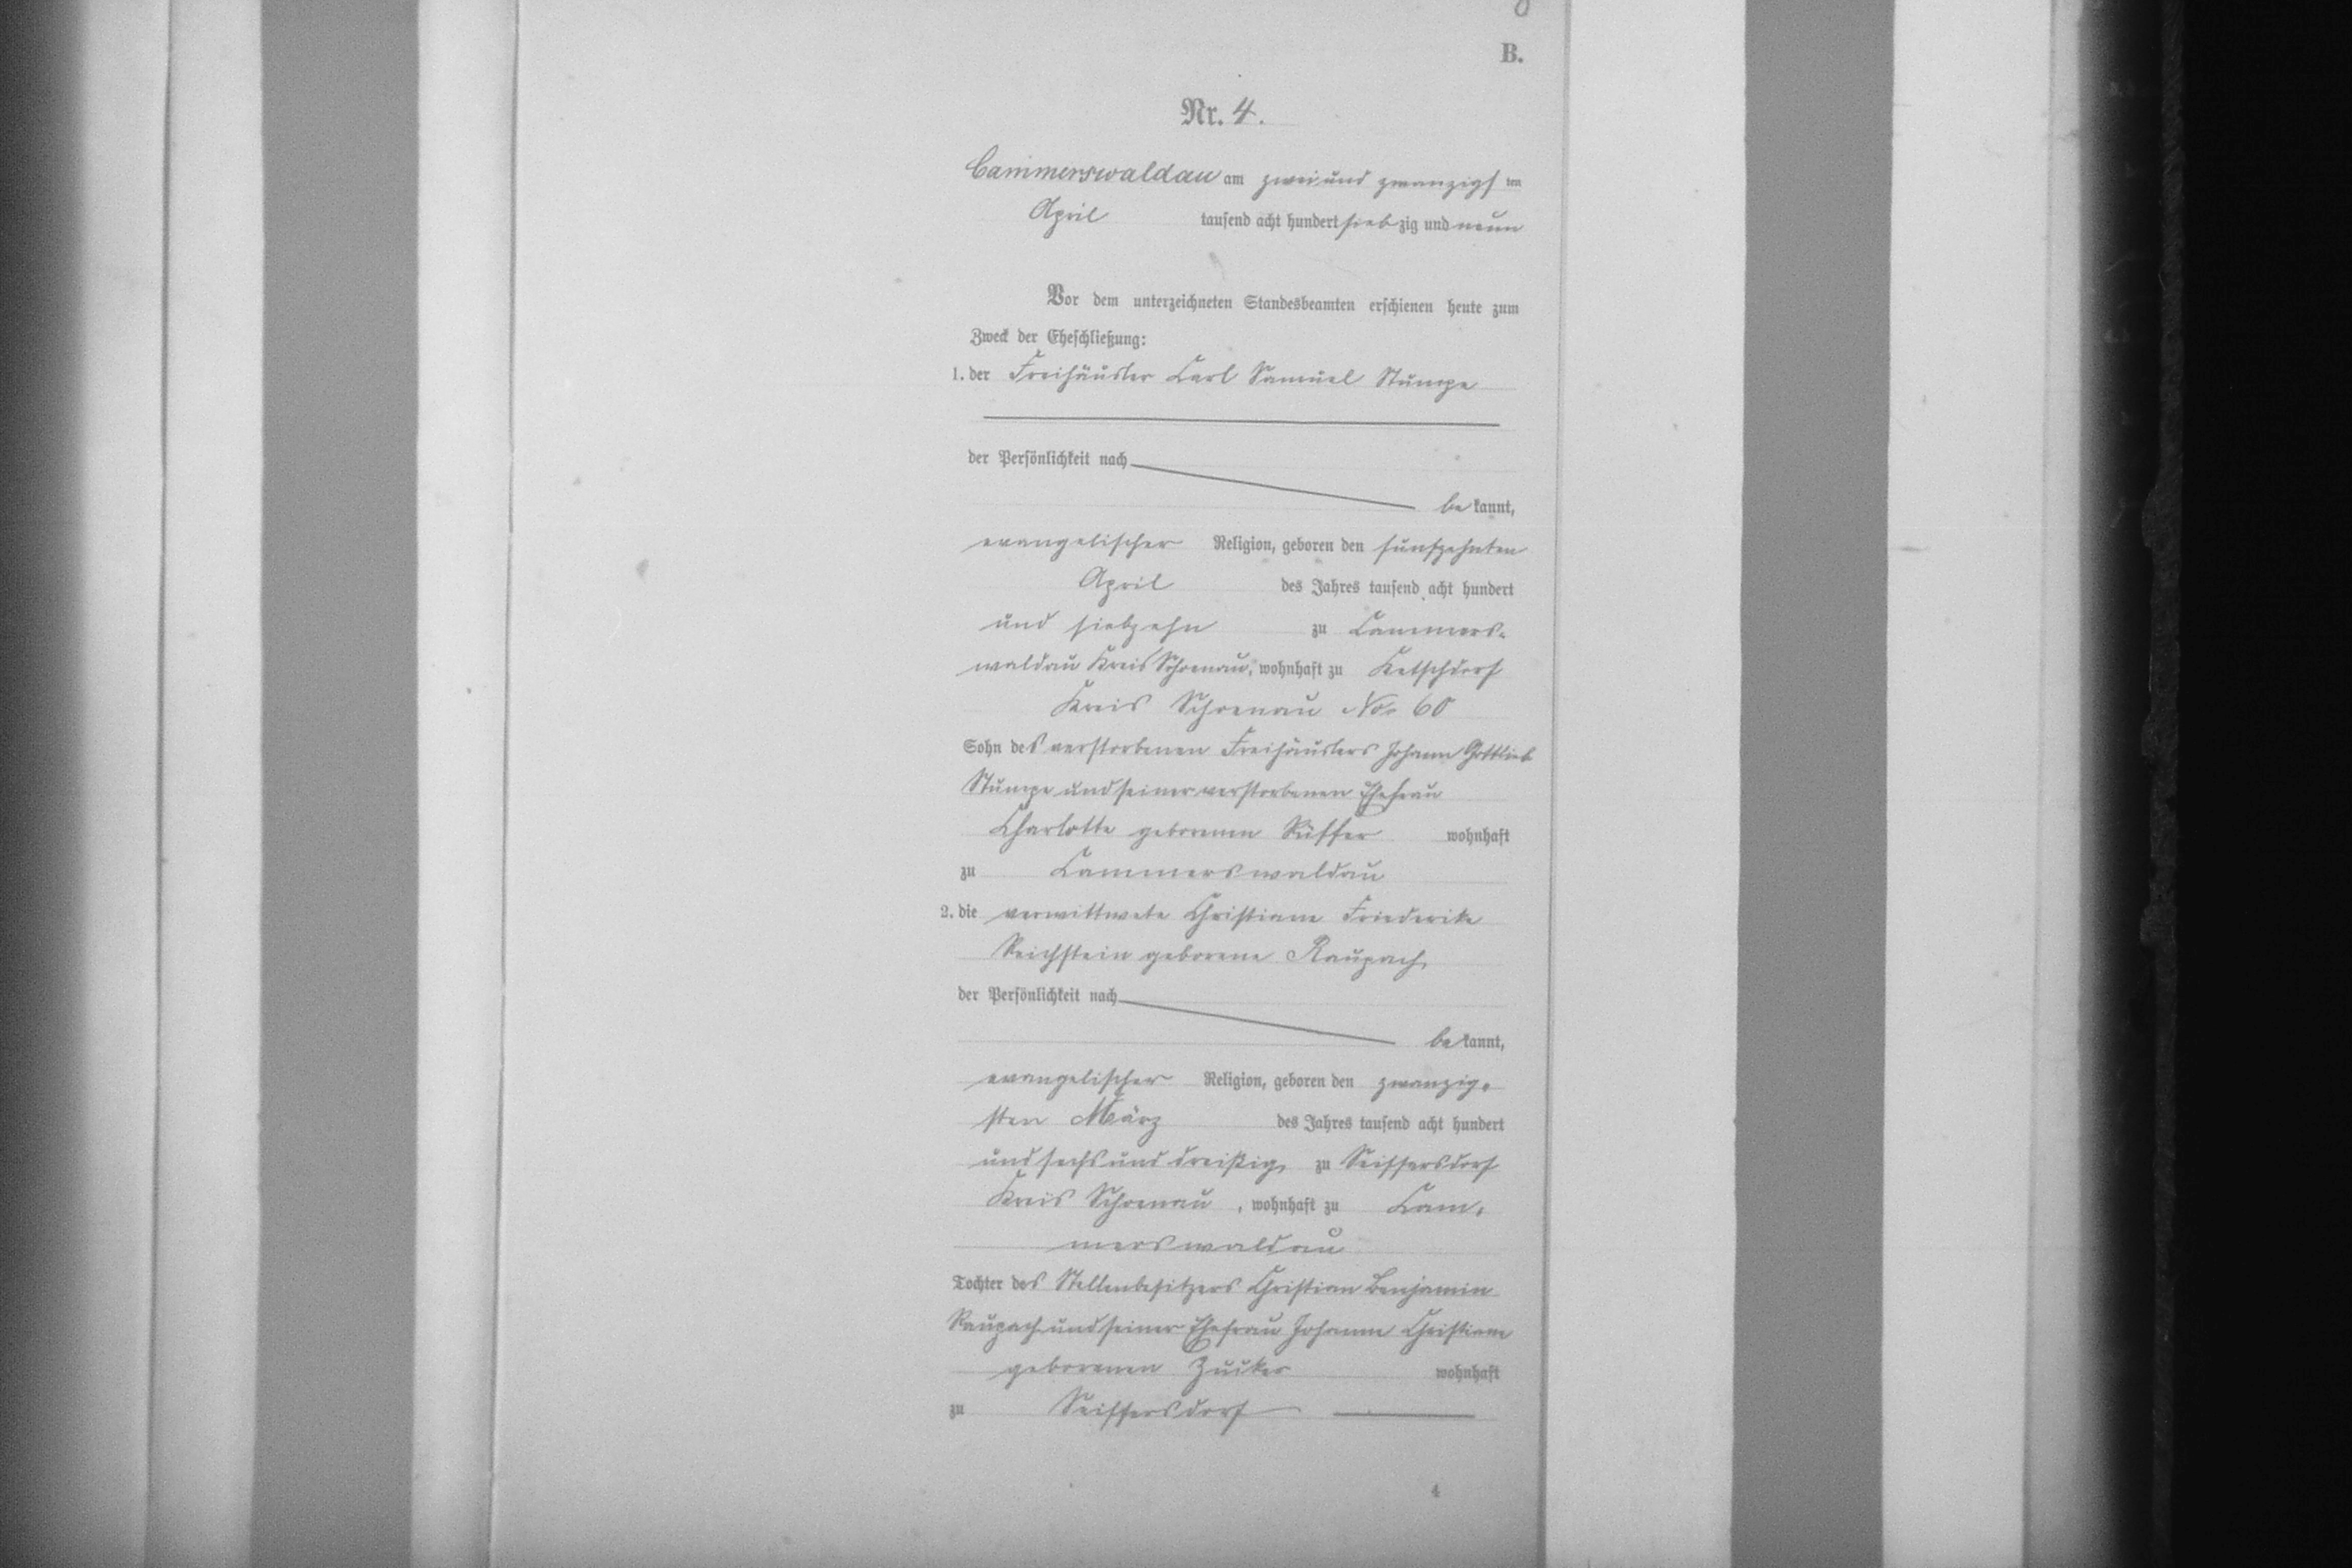 B.
Nr. 4.
Cammerswaldau am zwei und zwanzigsten
April tausend acht hundert siebzig und neun
Vor dem unterzeichneten Standesbeamten erschienen heute zum
Zweck der Eheschließung:
1. der Freihäusler Carl Samuel Stumpe
der Persönlichkeit nach
bekannt,
evangelischer Religion, geboren den fünfzehnten
April des Jahres tausend acht hundert
und siebzehn zu Cammers-
waldau Kreis Schoenau, wohnhaft zu Ketschdorf
Kreis Schoenau No. 60
Sohn des verstorbenen Freihäuslers Johann Gottlieb
Stumpe und seiner verstorbenen Ehefrau
Charlotte geborenen Rüffer wohnhaft
zu Cammerswaldau
2. die verwittwete Christiane Friederike
Reichstein geborene Raupach
der Persönlichkeit nach
bekannt,
evangelischer Religion, geboren den zwanzig-
sten März des Jahres tausend acht hundert
und sechs und dreißig zu Seiffersdorf
Kreis Schoenau, wohnhaft zu Cam-
merswaldau
Tochter des Stellenbesitzers Christian Benjamin
Raupach und seiner Ehefrau Johanne Christiane
geborenen wohnhaft
zu Seiffersdorf
4